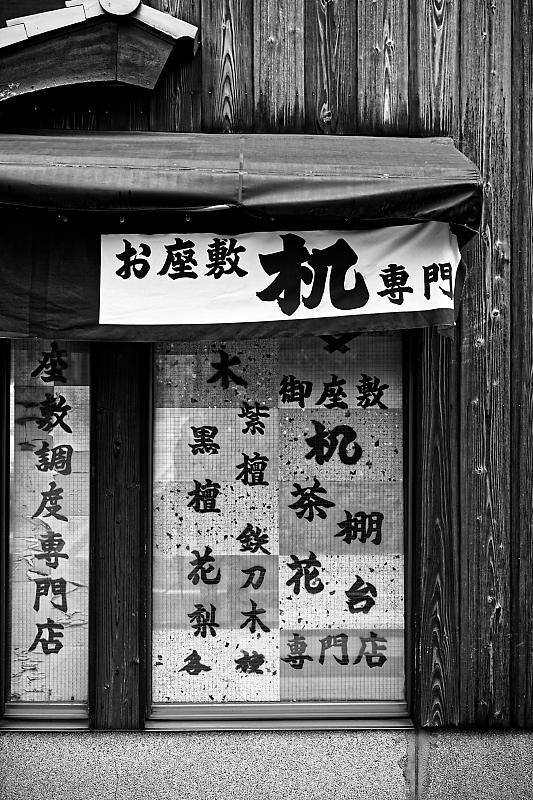 お座敷机専門
御座敷
机
茶棚
花台
専門店
木
紫檀
鉄刀木
黒檀
花梨
各種
座敷調度専門店